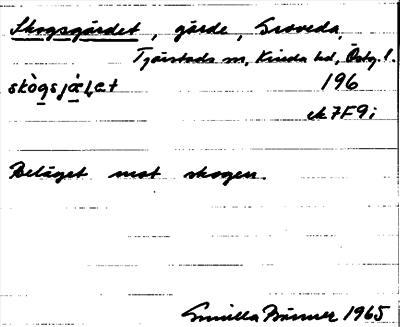 Skogsgärdet, gärde, Groveda,
Tjärstads sn, Kinda hd, Östg. l.
skògsjæ̀ḷət 196
ek 7F9i
Beläget mot skogen.
Gunilla 1965